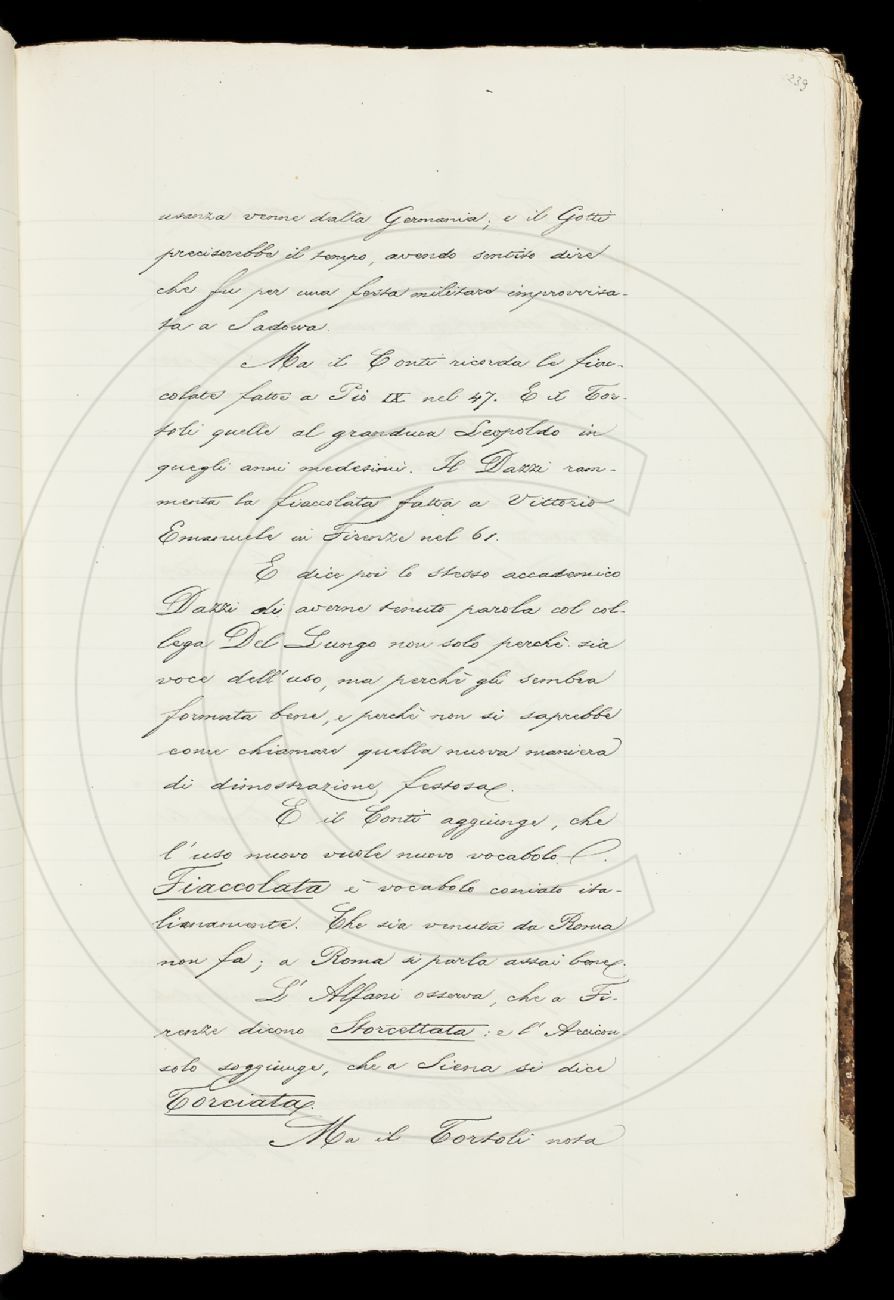 239
usanza venne dalla Germania; e il Gotti
preciserebbe il tempo, avendo sentito dire
che fu per una festa militare improvvisa-
ta a Sadowa.
Ma il Conti ricorda le fiac-
colate fatte a Pio IX nel 47. E il Tor-
toli quelle al granduca Leopoldo in
quegli anni medesimi. Il Dazzi ram-
menta la fiaccolata fatta a Vittorio
Emanuele in Firenze nel 61.
E dice poi lo stesso accademico
Dazzi di averne tenuto parola col col-
lega Del Lungo non solo perchè sia
voce dell'uso, ma perchè gli sembra
formata bene, e perchè non si saprebbe
come chiamare quella nuova maniera
di dimostrazione festosa.
E il Conti aggiunge, che
l'uso nuovo vuole nuovo vocabolo.
Fiaccolata è vocabolo coniato ita-
lianamente. Che sia venuta da Roma
non fa; a Roma si parla assai bene.
L'Alfani osserva, che a Fi-
renze dicono Storcettata; e l'Arcicon-
solo soggiunge, che a Siena si dice
Torciata.
Ma il Tortoli nota